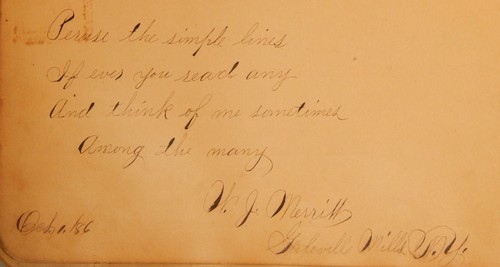 Peruse the simple lines
If ever you read any
And think of me sometimes
Among the many
W. J. Merritt
Mills N.Y.